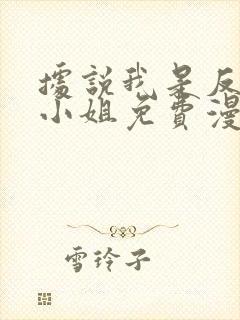 據說我是反
小姐免費漫
雪玲子